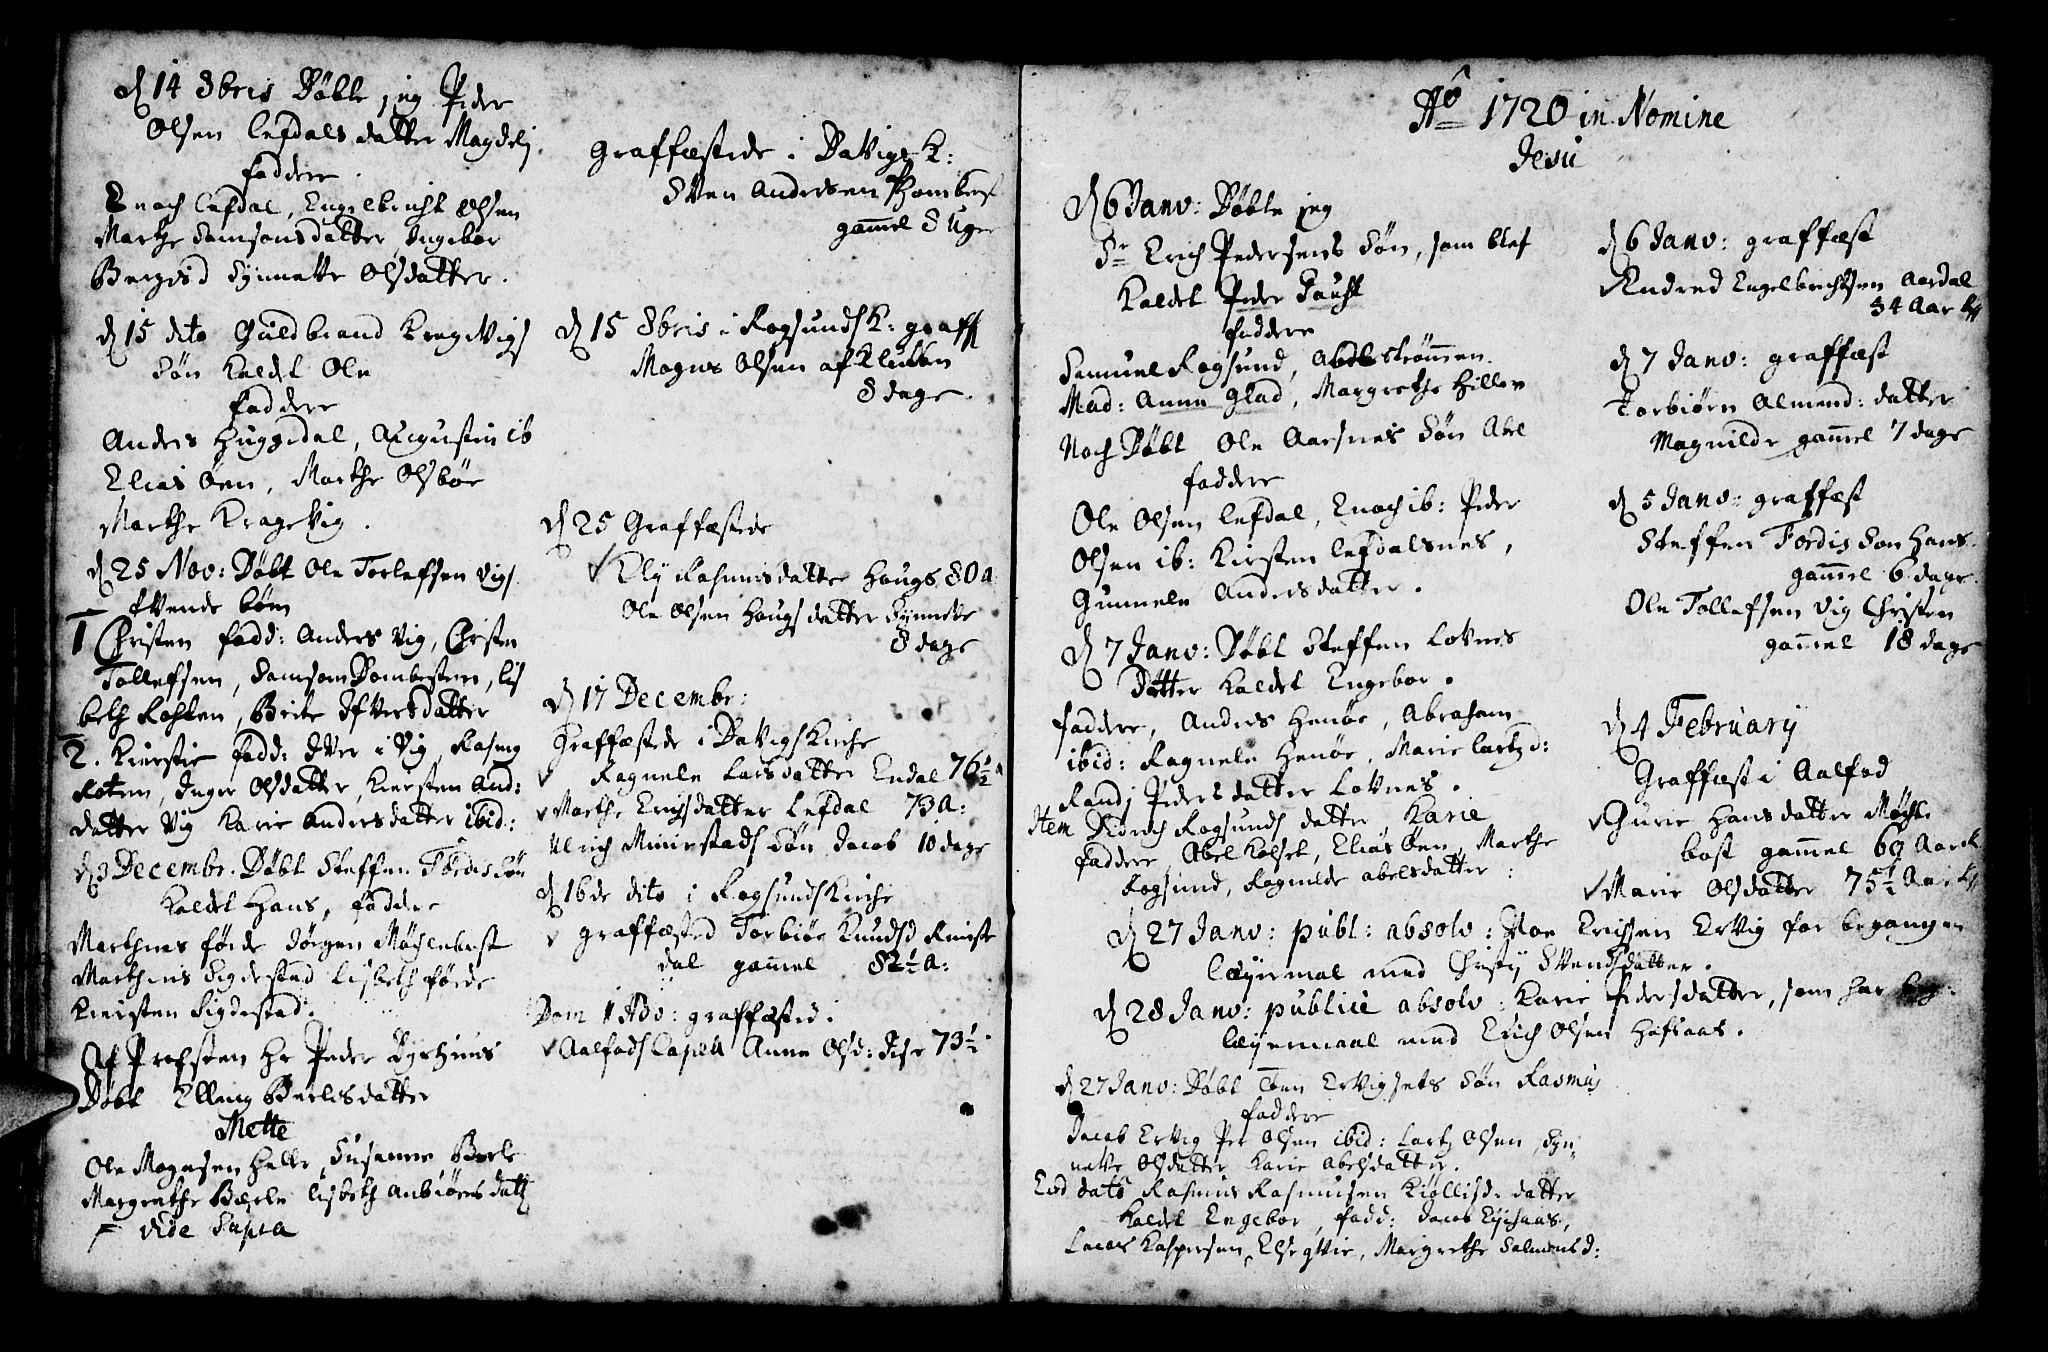 d 14 8bris Døbte jeg Peder
Olsen Lefdals datter Magdeli
faddere
Enoch Lefdal, Engelbricht Olsen
Marthe Samsonsdatter Ingebor
Synnette Olsdatter.
d 15 dito Guldbrand Kragevigs
Søn Kaldet Ole
faddere
Anders Huggedal, Augustin ib
Elias Øen, Marthe Olsbøe
Marthe Kragevig.
d 25 Nov: Døbt Ole Torlefsen Vigs
tvende børn
1 Christen fadd: Anders Vig, Christen
Tollefsen, Samson Dombesten, Lis
beth Rohten, Brite Ifversdatter
2. Kierstie fadd: Iver i Vig, Rasmus
Roten, Inger Olsdatter, Kiersten And:
datter Vig Karie Andersdatter ibid:
d 3 Decembr. Døbt Steffen Førdis Søn
Kaldet Hans, faddere
Marthnes førde Jørgen Møchlebost
Marthins Sigdestad Lisbeth førde
Kiersten Sigdestad.
Af Profsten Hr Peder
Døbt Elling Berlesdatter
Mette
Ole Mogensen Helle, Susanne Berle
Margrethe Berle Lisbeth Anbiørnsdatt
vide supra
Graffæstede i Davigs K:
Sven Andersen Dombest
gammel 8 Uger
d 15 8bris i Rogsunds K: graff
Mogns Olsen af Klubben
8 dage.
d 25 Graffæstede
Ely Rasmusdatter Haugs 80 a
Ole Olsen Haugs datter Synnete
8 dage
d 17 Decembr:
Graffæstede i Davigs Kirche
Ragnele Larsdatter Endal 76 1/2 a
Marthe Erichsdatter Lefdal 73 A:
Ulrich Mumestads Søn Jacob 10 dage
d 16de dito i Rogsunds Kirche
graffæsted Torbiør Knudsd Rimste
dal gammel 82 1/2 A:
Dom 1 Adv: graffæsted.
Aalfods Capell Anne Olsd: 73 1/2
Ao 1720 in Nomine
Jesu
d 6 Janv: Døbte jeg
Sr Erich Pedersens Søn, som blef
Kaldet Peder Daucht
faddere
Samuel Rogsund, Abel Strømmen
Mad: Anne Glad, Margrethe Hillev
Noch Døbt Ole Aarsnes Søn Abel
faddere
Ole Olsen Lefdal, Enoch ib: Peder
Olsen ib: Kirsten Lefdalsnes,
Gunnele Andersdatter.
d 7 Janv: Døbt Steffen Lovnes
Datter kaldet Engebor.
faddere, Anders Henøe, Abraham
ibid: Ragnele Henøe, Marie Lartzd:
Randi Pedersdatter Lovnes.
Item Didrich Rogsunds datter Karie
faddere Abel Kolset, Elias Øen, Marthe
Rogsund, Ragnilde Abelsdatter:
d 27 Janv: publ: absolv: Roe Erichsen Ervig for begangen
Leyermal med Christj Svendsdatter.
d 28 Janv: publice absolv: Karie Pedersdatter, som har beg:
Leyermaal med Erich Olsen Hafsaas.
d 27 Janv: Døbt Ervigsets Søn Rasmus
faddere
Jacob Ervig Per Olsen ibid: Lartz Olsen, Syn
nette Olsdatter Karie Abelsdatter.
Eod dato Rasmus Rasmusen Kiøllesd: datter
Kaldet Engebor, fadd: Jacob
Kaspersen, Else, Margrethe Salmonsd:
d 6 Janv: graffæst
Andreas Engelbrechtsen Aardal
34 Aar
d 7 Janv: graffæst
Torbiørn Almend: datter
Magnilde gammel 7 dage
d 5 Janv: graffæst
Steffen Førdis Søn Hans
gammel 6 dage
Ole Tollefsen Vig Christen
gammel 18 dage
d 4 February
Graffæst i Aalfod
Gurie Hansdatter Møchle
bost gammel 69 Aar
Marie Olsdatter 75 1/2 Aar